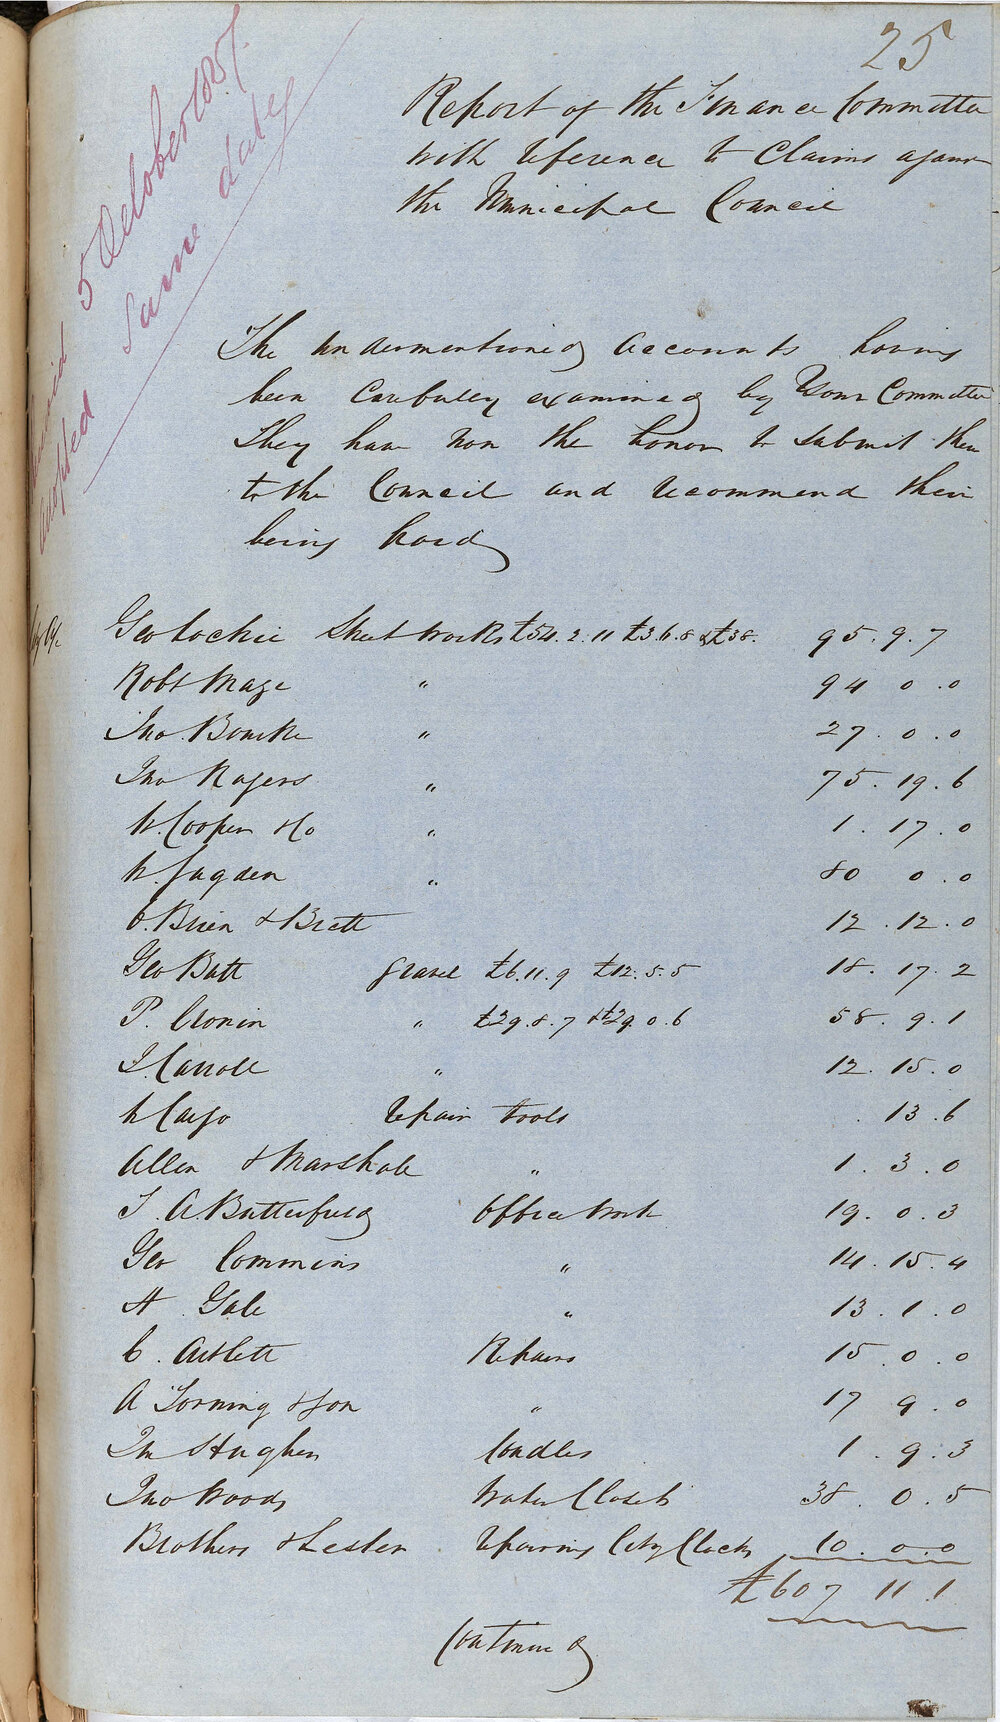 25
Report of the Finance Committee
with reference to Claims against
the Municipal Council
5 October 1857.
adopted same date
The undermentioned accounts having
been Carefully examined by Your Committee
They have now the honor to submit them
to the Council and recommend their
being paid
Geo Lochie Street Works £54.2.11 £3.6.8 & £38. 95.9.7
Robt Mage " 94 0.0
Jno Bourke " 27.0.0
Jno Rogers " 75.19.6
W. Cooper & Co " 1.17.0
W. Sugden " 80 0.0
O.Brien & Brett 12.12.0
Geo Butt gravel £6.11.9 £12.5.5 18.17.2
P. Cronin " £29.8.7 & £29.0.6 58.9.1
J. Carroll " 12.15.0
W Cargo Repair tools .13.6
Allen & Marshall " 1.3.0
J. A. Butterfield Office Work 19.0.3
Geo Commins " 14.15.4
H Gale " 13.1.0
C. Artlett Repairs 15.0.0
A Torning & Son " 17 9.0
Jn Hughes Candles 1.9.3
Jno Woods Water Closets 38.0.5
Brothers & Lester repairing City Clock 10.0.0
£607 11.1
Continued